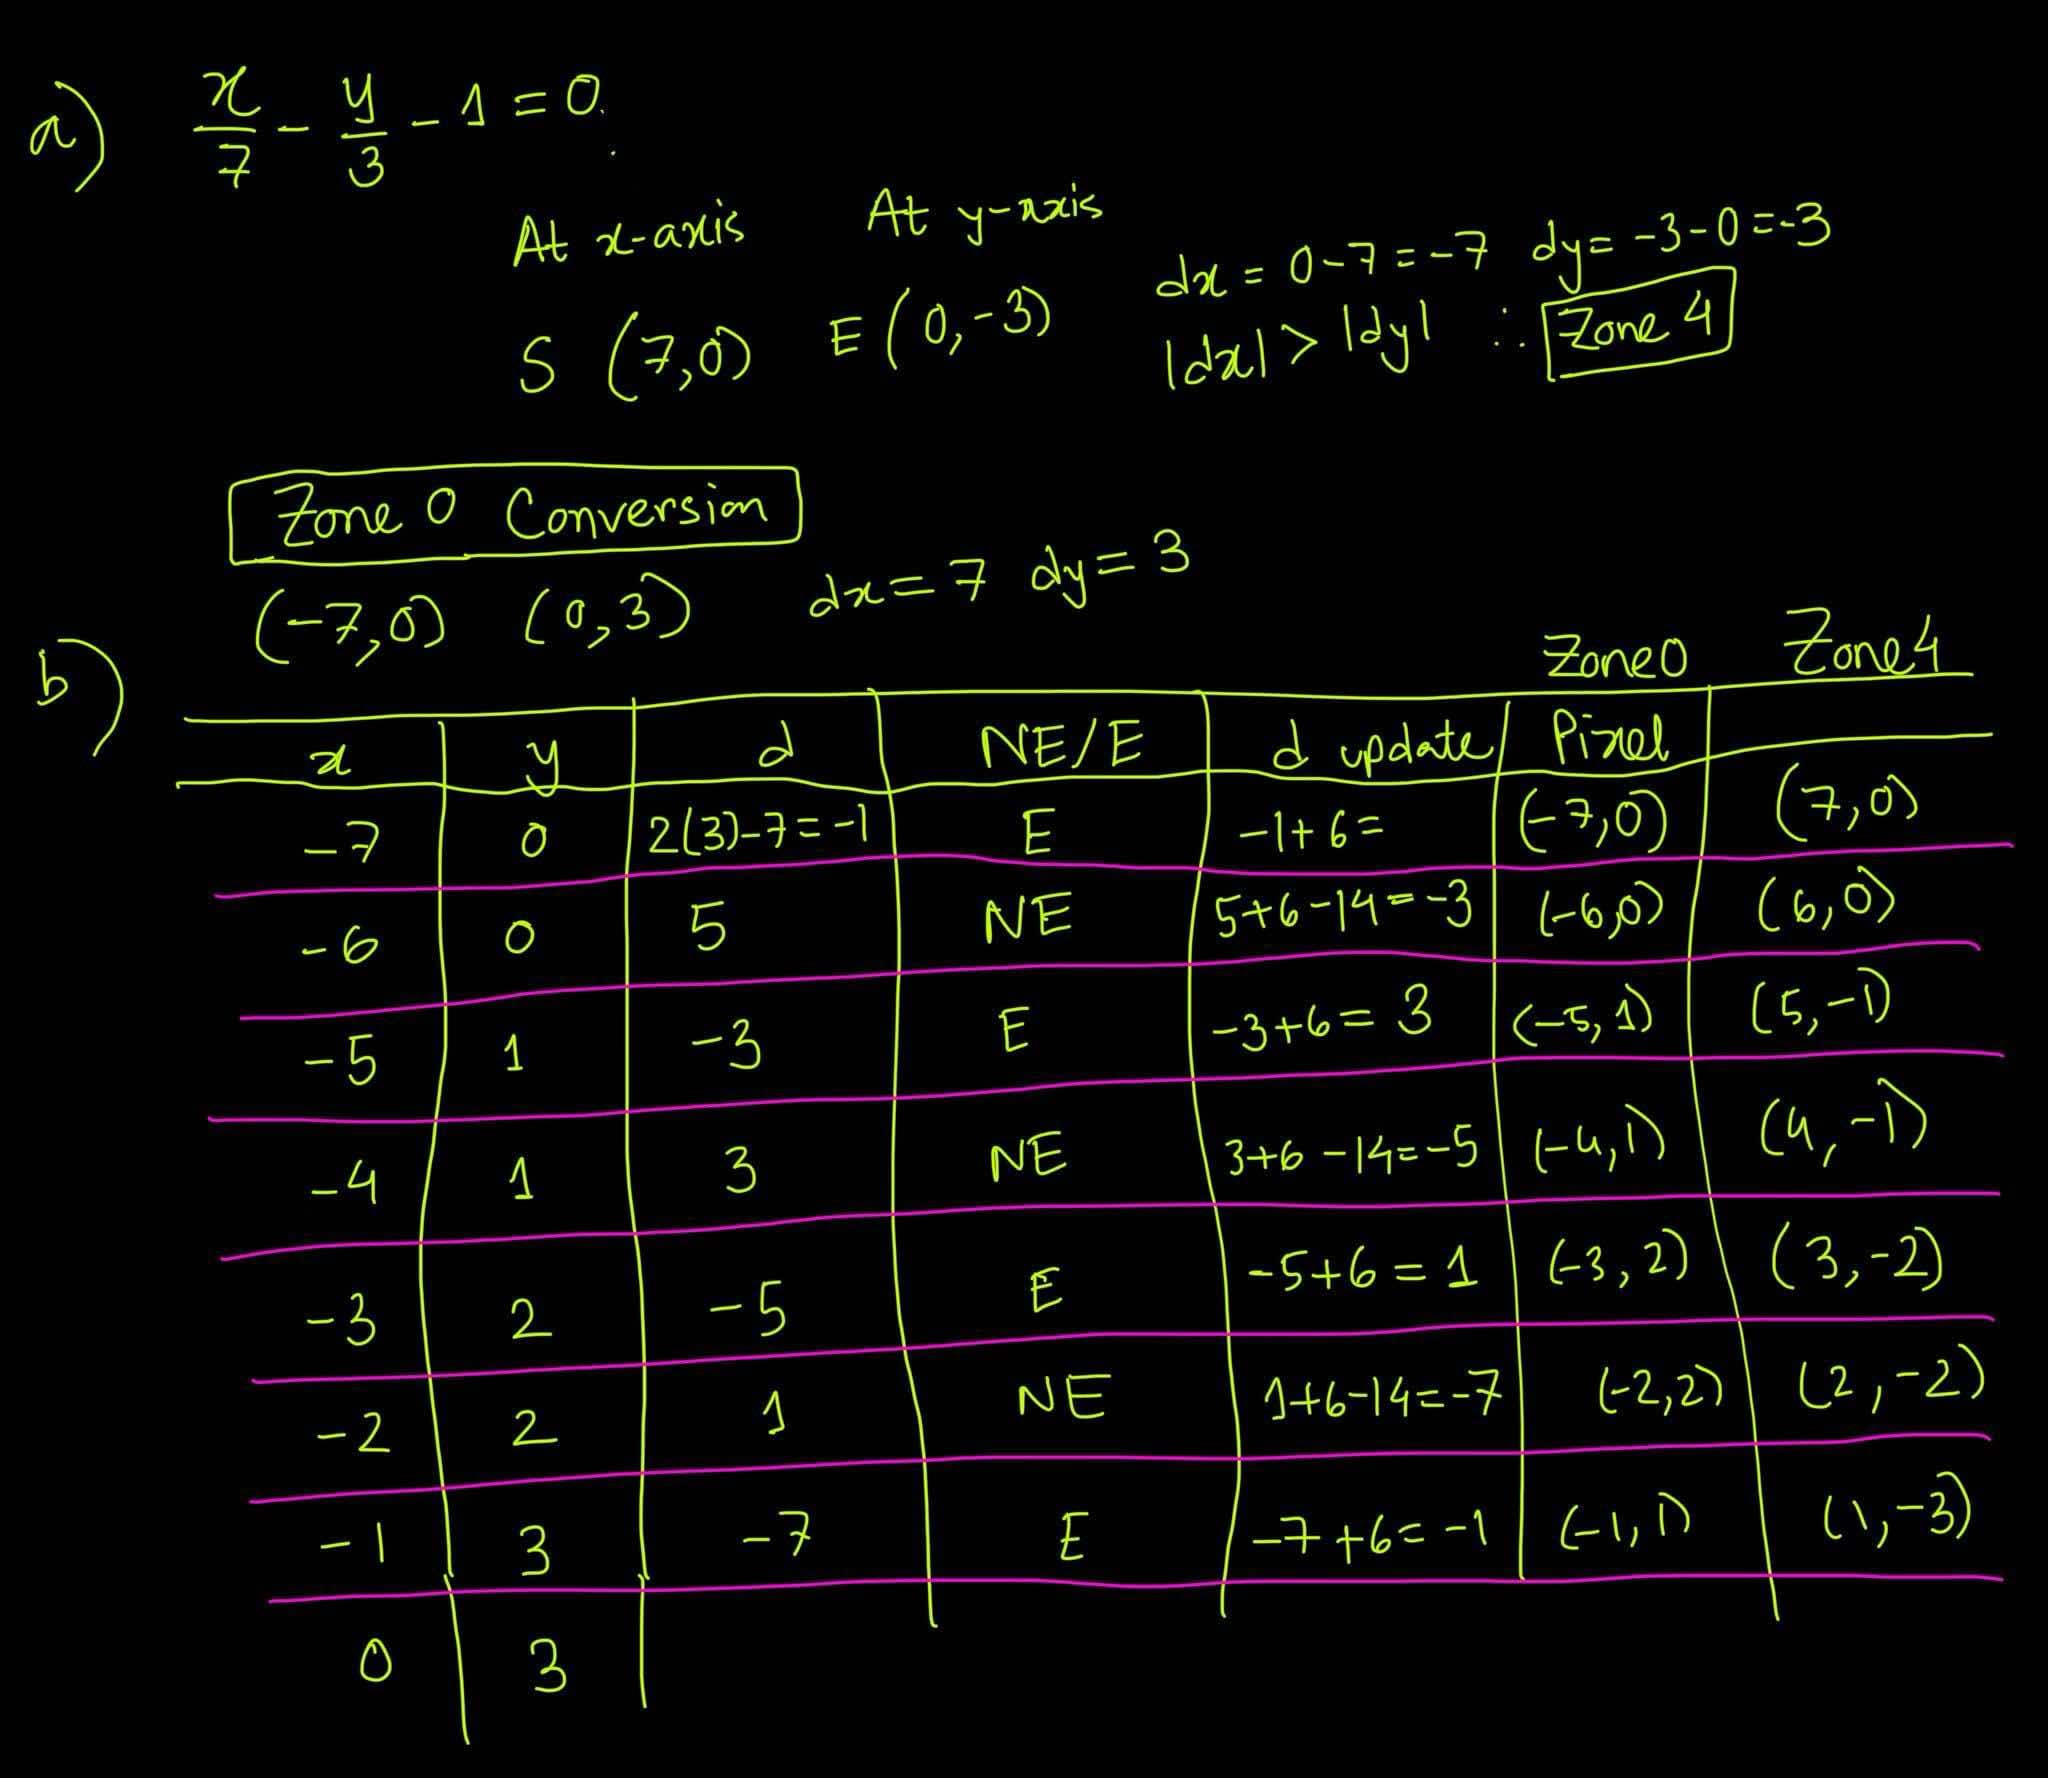 a) x/7 - y/3 - 1 = 0.
At x-axis At y-axis
S (7,0) E (0,-3)
dx = 0-7 = -7 dy = -3-0 = -3
|dx| > |dy| ∴ Zone 4
Zone 0 Conversion
(-7,0) (0,3) dx = 7 dy = 3
b)
Zone 0 Zone 4
x y d NE/E d update Pixel
-7 0 2(3)-7=-1 E -1+6= (-7,0) (7,0)
-6 0 5 NE 5+6-14=-3 (-6,0) (6,0)
-5 1 -3 E -3+6=3 (-5,1) (5,-1)
-4 1 3 NE 3+6-14=-5 (-4,1) (4,-1)
-3 2 -5 E -5+6=1 (-3,2) (3,-2)
-2 2 1 NE 1+6-14=-7 (-2,2) (2,-2)
-1 3 -7 E -7+6=-1 (-1,1) (1,-3)
0 3